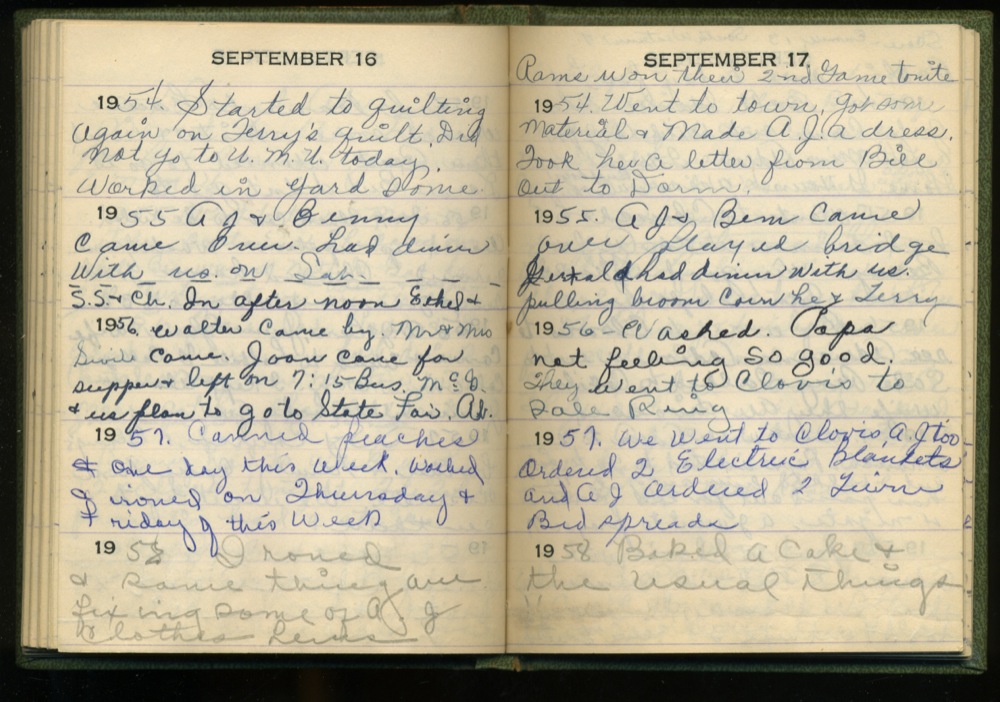 SEPTEMBER 16
1954. Started to quilting
again on Terry's quilt. Did
not go to W. M. U. today
Worked in yard some.
1955 A J & Benny
came over. had dinner
with us. on Sat.
S.S. & Ch. In after noon Ethel &
1956. Walter came by. Mr & Mrs
came. Joan came for
supper & left on 7:15 Bus. McD.
& us plan to go to State Fair. Ad.
1957. Canned peaches
& one day this week. Washed
I ironed on Thursday &
Friday of this Week
1958 Ironed
& same thing are
fixing some of A. J
Clothes
SEPTEMBER 17
Rams won their 2nd Game tonite
1954. Went to town, got some
Material & Made A. J. a dress.
Took her a letter from Bill
out to Dorm.
1955. A J & Benn Came
over played bridge
had dinner with us.
pulling broom Corn
Terry
1956 - Washed. Papa
not feeling so good.
They went to Clovis to
Sale Ring
1957. We Went to Clovis, A. J too
Ordered 2 Electric Blankets
and A J ordered 2
Bed spreads
1958 Baked a Cake &
the usual things